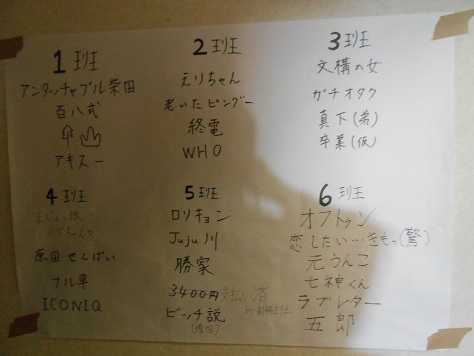 1 班
アンタッチャブル柴田
百八式
アキスー
2 班
えりちゃん
老いたピングー
終電
WHO
3 班
文構の女
ガチオタク
真下(弟)
卒業(仮)
4 班
原宿せんぱい
フル単
ICONIQ
5 班
ロリキョン
JuJu川
勝家
3400円支払い済
ビッチ説
6 班
オフトゥン
恋したい…
元うんこ
七神くん
ラブレター
五郎